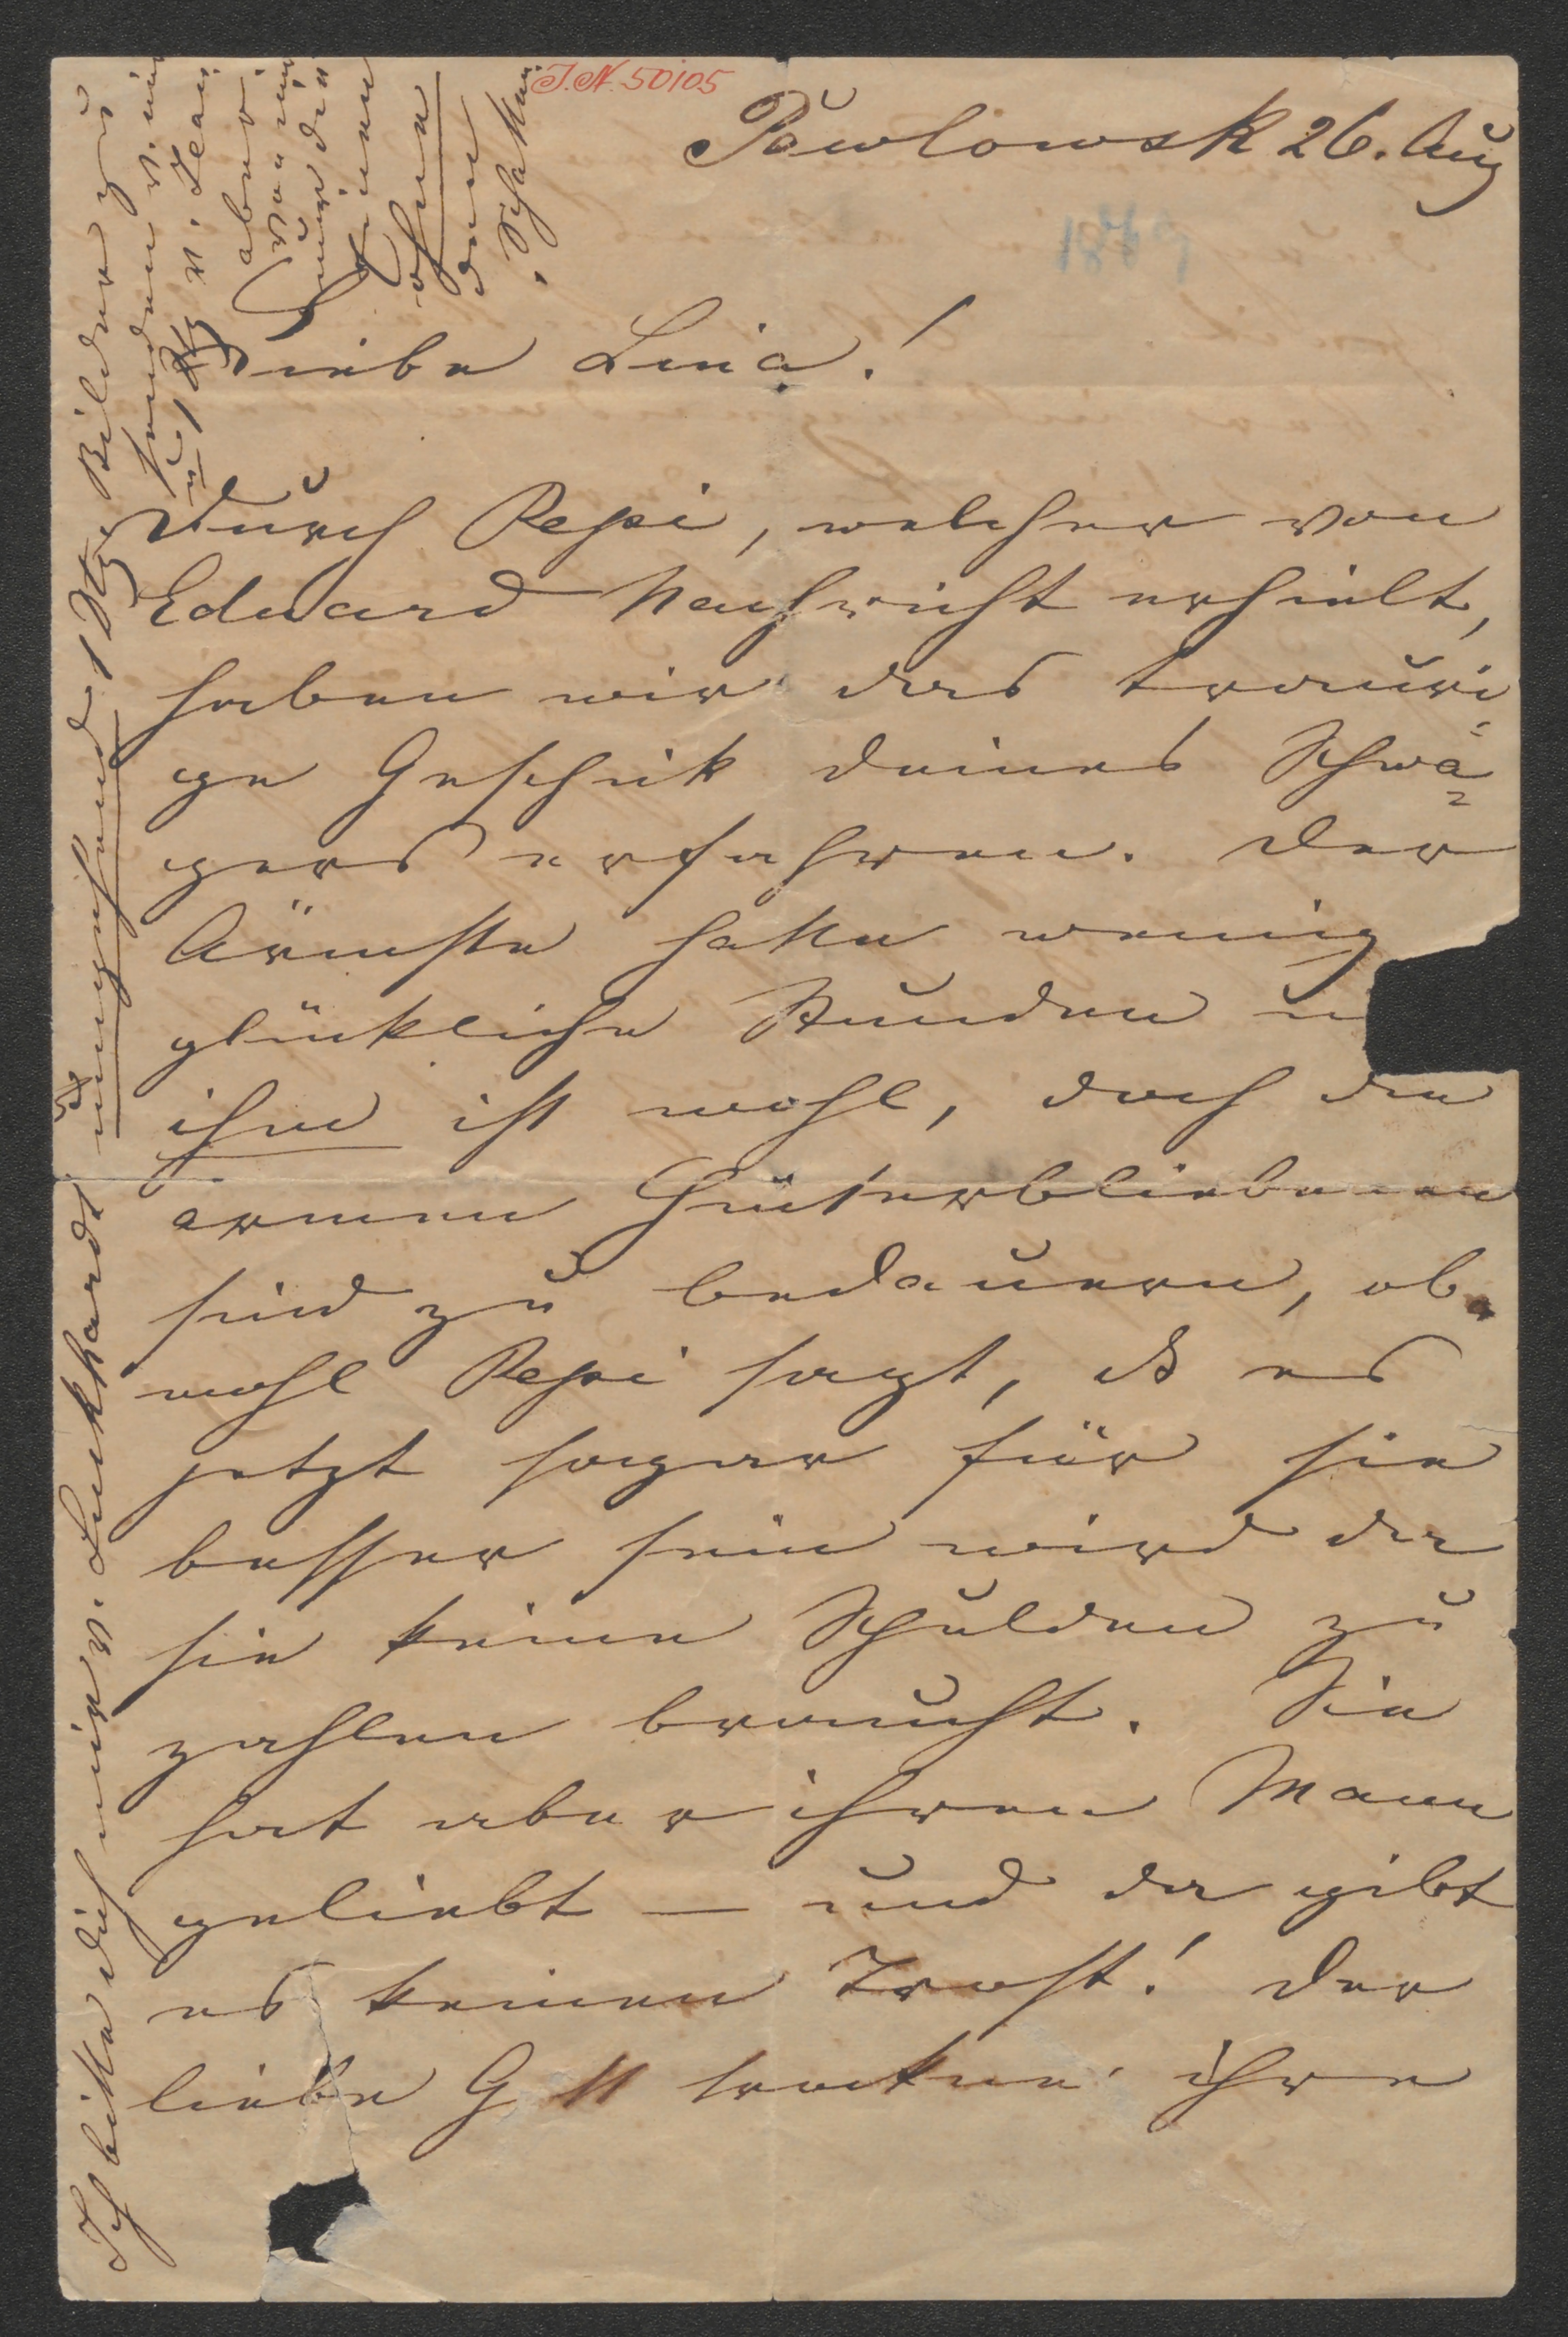 J.N. 50105
Pawlowsk 26. Aug
Liebe Lina!
Durch Pepi, welcher von
Eduard Nachricht erhielt,
haben wir das trauri-
ge Geschik deines Schwa=
gers erfahren. Der
Ärmste hatte wenig
glückliche Stunden u
ihm ist wohl, doch die
armen Hinterbliebenen
sind zu bedauern, ob-
wohl Pepi sagt, daß es
jetzt sogar für sie
besser sein wird da
sie keine Schulden zu
zahlen braucht. Sie
hat aber ihren Mann
geliebt — und da gibt
es keinen Trost! Der
liebe G tt trockne ihre
Ich bitte dich mir v. Luckhardt umgehend 1 Dtz. Bilder zu
senden v. mir
u 1 Dtz v. Jean
aber
von mir
nur die
kleinen
ohne
den